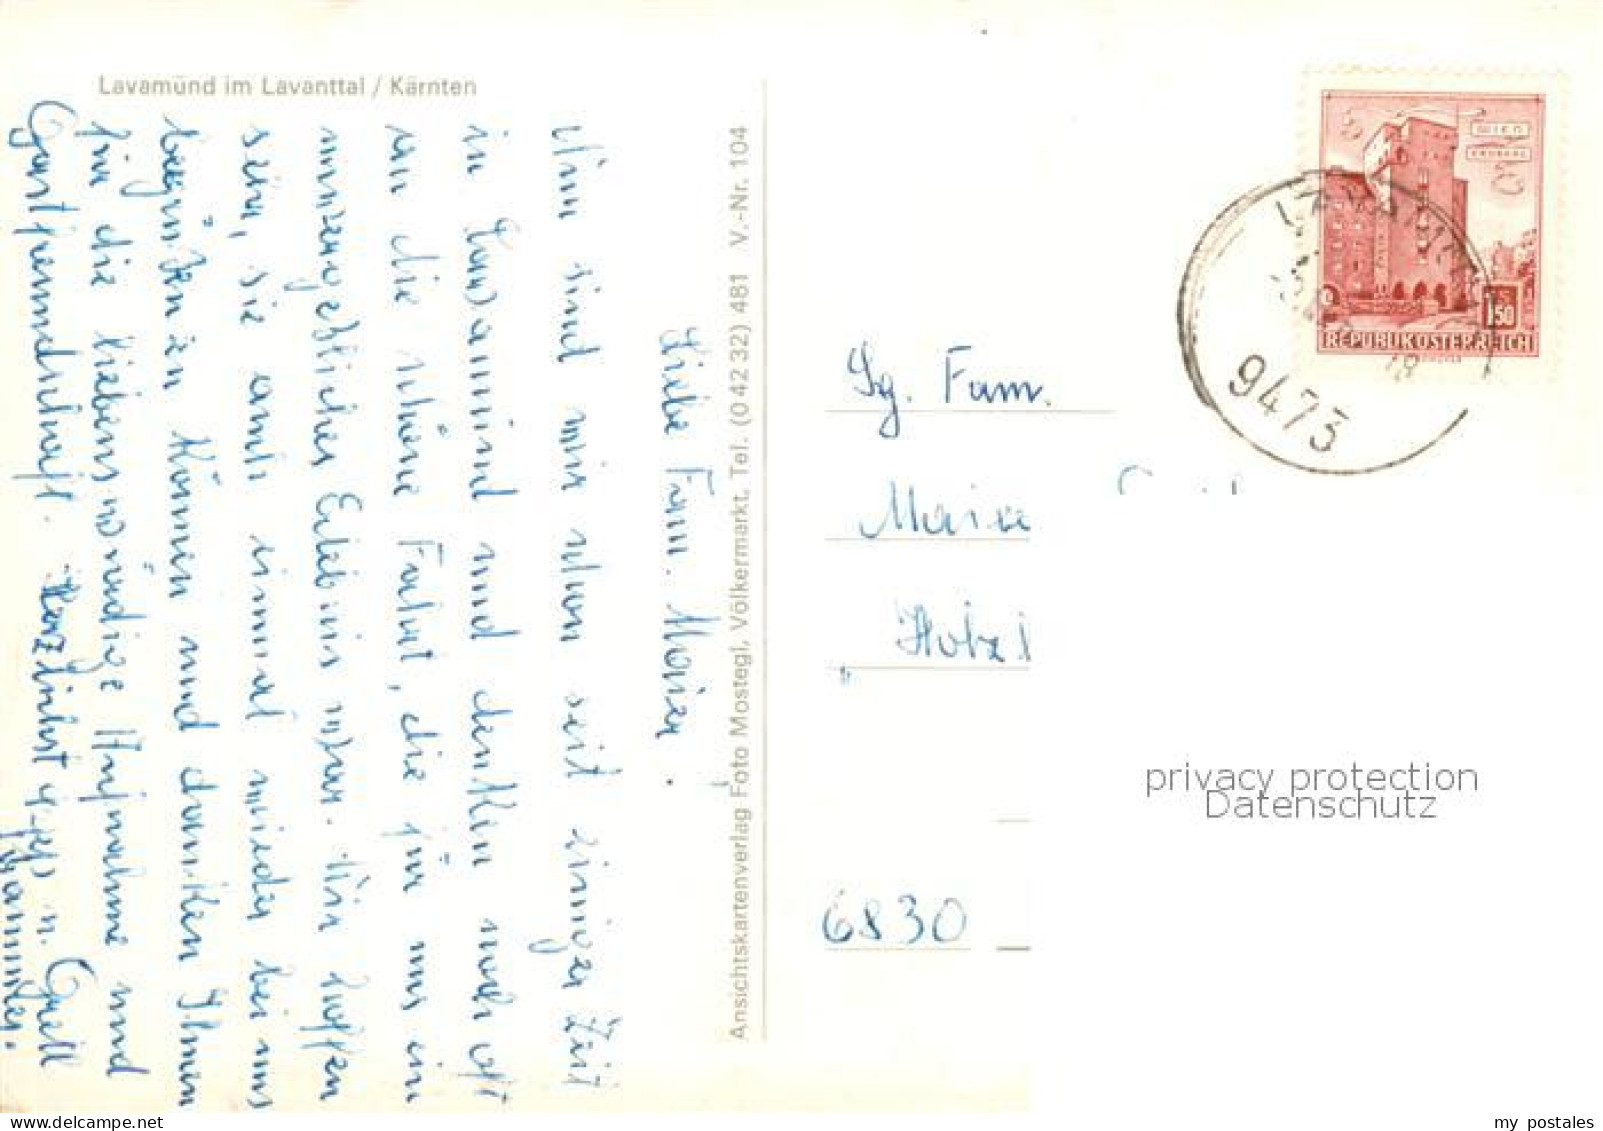 Lavamünd im Lavanttal / Kärnten
Liebe Fam. Maier.
Nun sind wir schon seit einiger Zeit
in Lavamünd und denken noch oft
an die schöne Fahrt, die für uns ein
unvergeßliches Erlebnis war. Wir hoffen
sehr, sie auch einmal wieder bei uns
begrüßen zu können und danken Ihnen
für die liebenswürdige Aufnahme und
Gastfreundschaft. Herzlichst
Ansichtskartenverlag Foto Mostegl, Völkermarkt, Tel. (0 42 32) 481 V.-Nr. 104
WIEN
ERDBERG
1.50
REPUBLIK ÖSTERREICH
LAVAMÜND
9473
Sg. Fam.
Maier
Holz
6830
privacy protection
Datenschutz
my postales